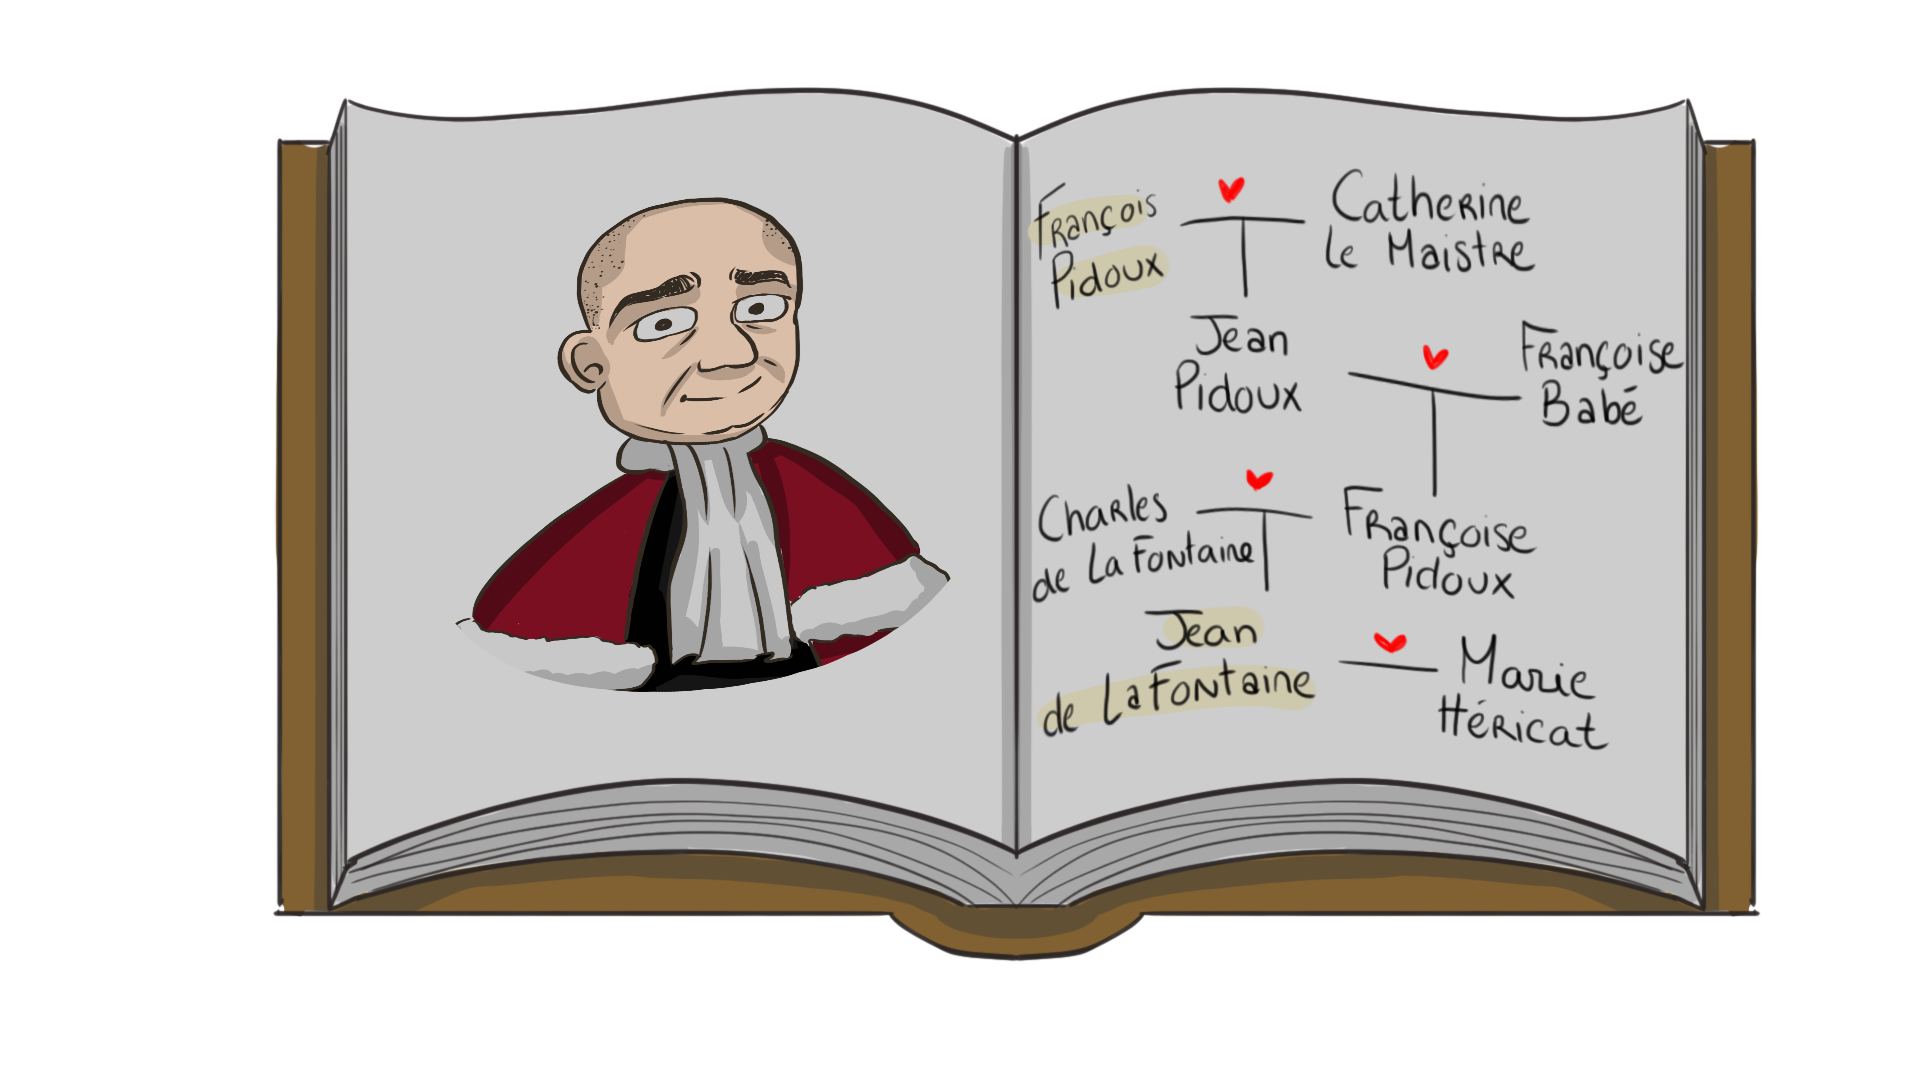 François
Pidoux
Catherine
le Maistre
Jean
Pidoux
Françoise
Babé
Charles
de La Fontaine
Françoise
Pidoux
Jean
de La Fontaine
Marie
Héricat